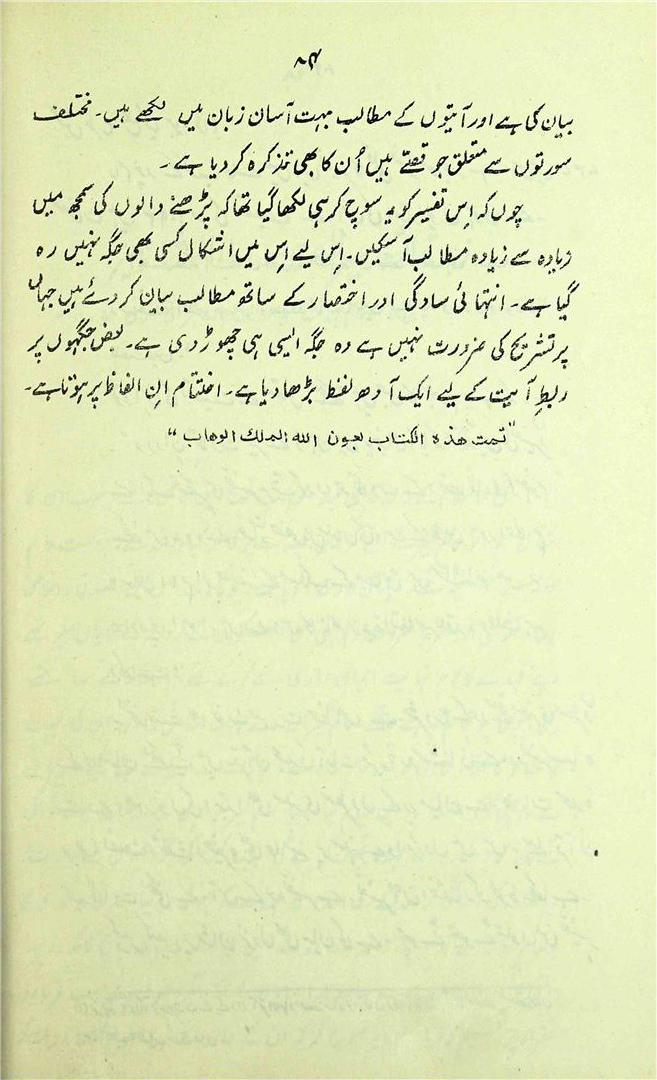 ۸۴
بیان کی ہے اور آیتوں کے مطالب بہت آسان زبان میں لکھے ہیں۔ مختلف
سورتوں سے متعلق جو قصّے ہیں اُن کا بھی تذکرہ کر دیا ہے۔
چوں کہ اِس تفسیر کو یہ سوچ کر ہی لکھا گیا تھا کہ پڑھنے والوں کی سمجھ میں
زیادہ سے زیادہ مطالب آ سکیں۔ اِس لیے اِس میں اشکال کسی بھی جگہ نہیں رہ
گیا ہے۔ انتہائی سادگی اور اختصار کے ساتھ مطالب بیان کر دئے ہیں جہاں
پر تشریح کی ضرورت نہیں ہے وہ جگہ ایسی ہی چھوڑ دی ہے۔ بعض جگہوں پر
ربطِ آیت کے لیے ایک آدھ لفظ بڑھا دیا ہے۔ اختتام اِن الفاظ پر ہوتا ہے۔
"تمت هذه الكتاب بعون الله الملك الوهاب"